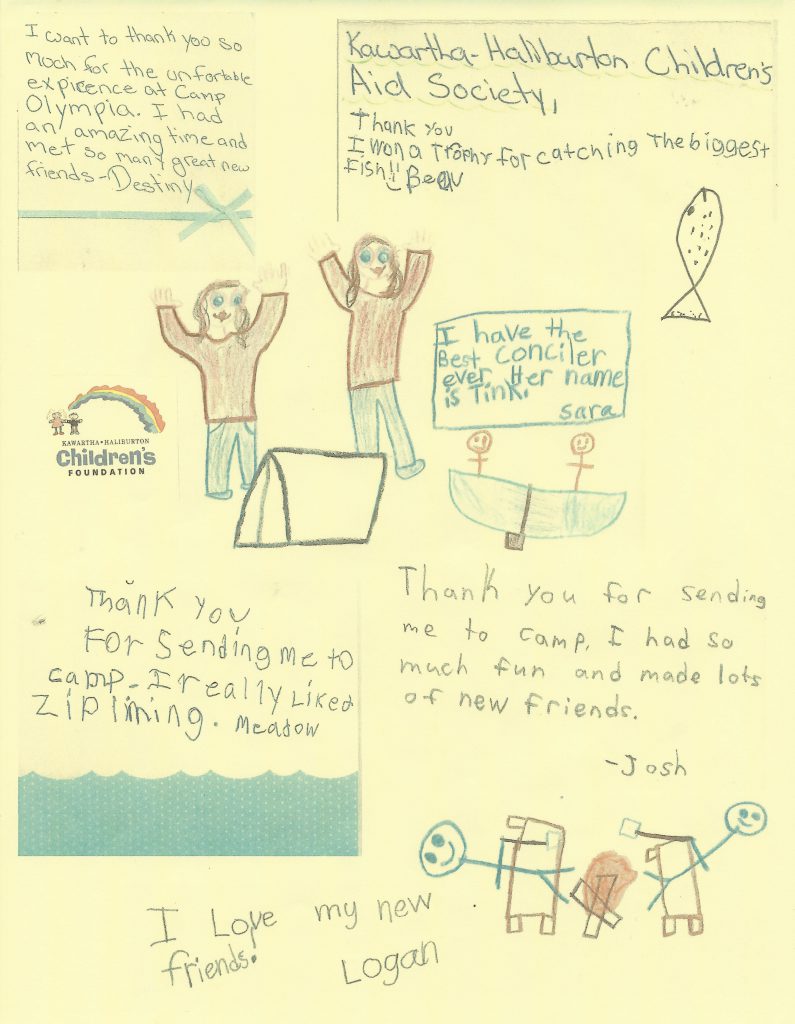 I want to thank you so
much for the unfortable
expirence at Camp
Olympia. I had
an amazing time and
met so many great new
friends-Destiny
Kawartha-Haliburton Children's
Aid Society,
Thank you
I won a Trophy for catching The biggest
Fish!!
I have the
Best Conciler
ever. Her name
is Tink.
Sara
KAWARTHA•HALIBURTON
Children's
FOUNDATION
Thank you
For Sending me to
camp- I really Liked
Ziplining. Meadow
Thank you for sending
me to camp. I had so
much fun and made lots
of new friends.
-Josh
I Love my new
friends. Logan